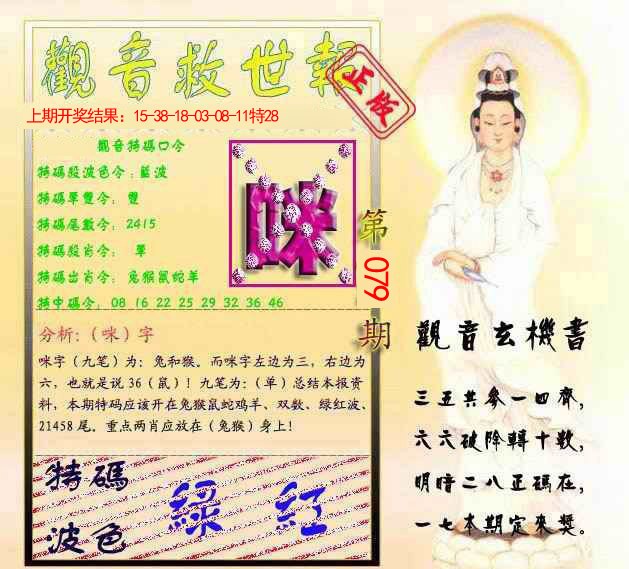 觀音救世報
正版
上期开奖结果：15-38-18-03-08-11特28
觀音特碼口令
特碼段波色令：藍波
特碼單雙令：雙
特碼尾數令：2415
特碼段肖令：單
特碼出肖令：兔猴鼠蛇羊
特中碼令：08 16 22 25 29 32 36 46
咪
第079期
分析：（咪）字
咪字（九笔）为：兔和猴。而咪字左边为三，右边为
六，也就是说36（鼠）！九笔为：（单）总结本报资
料，本期特码应该开在兔猴鼠蛇鸡羊、双数、绿红波、
21458尾。重点两肖应放在（兔猴）身上！
特碼
波色
綠 紅
觀音玄機書
三五共參一四齊，
六六破除轉十數，
明暗二八正碼在，
一七本期定來獎。